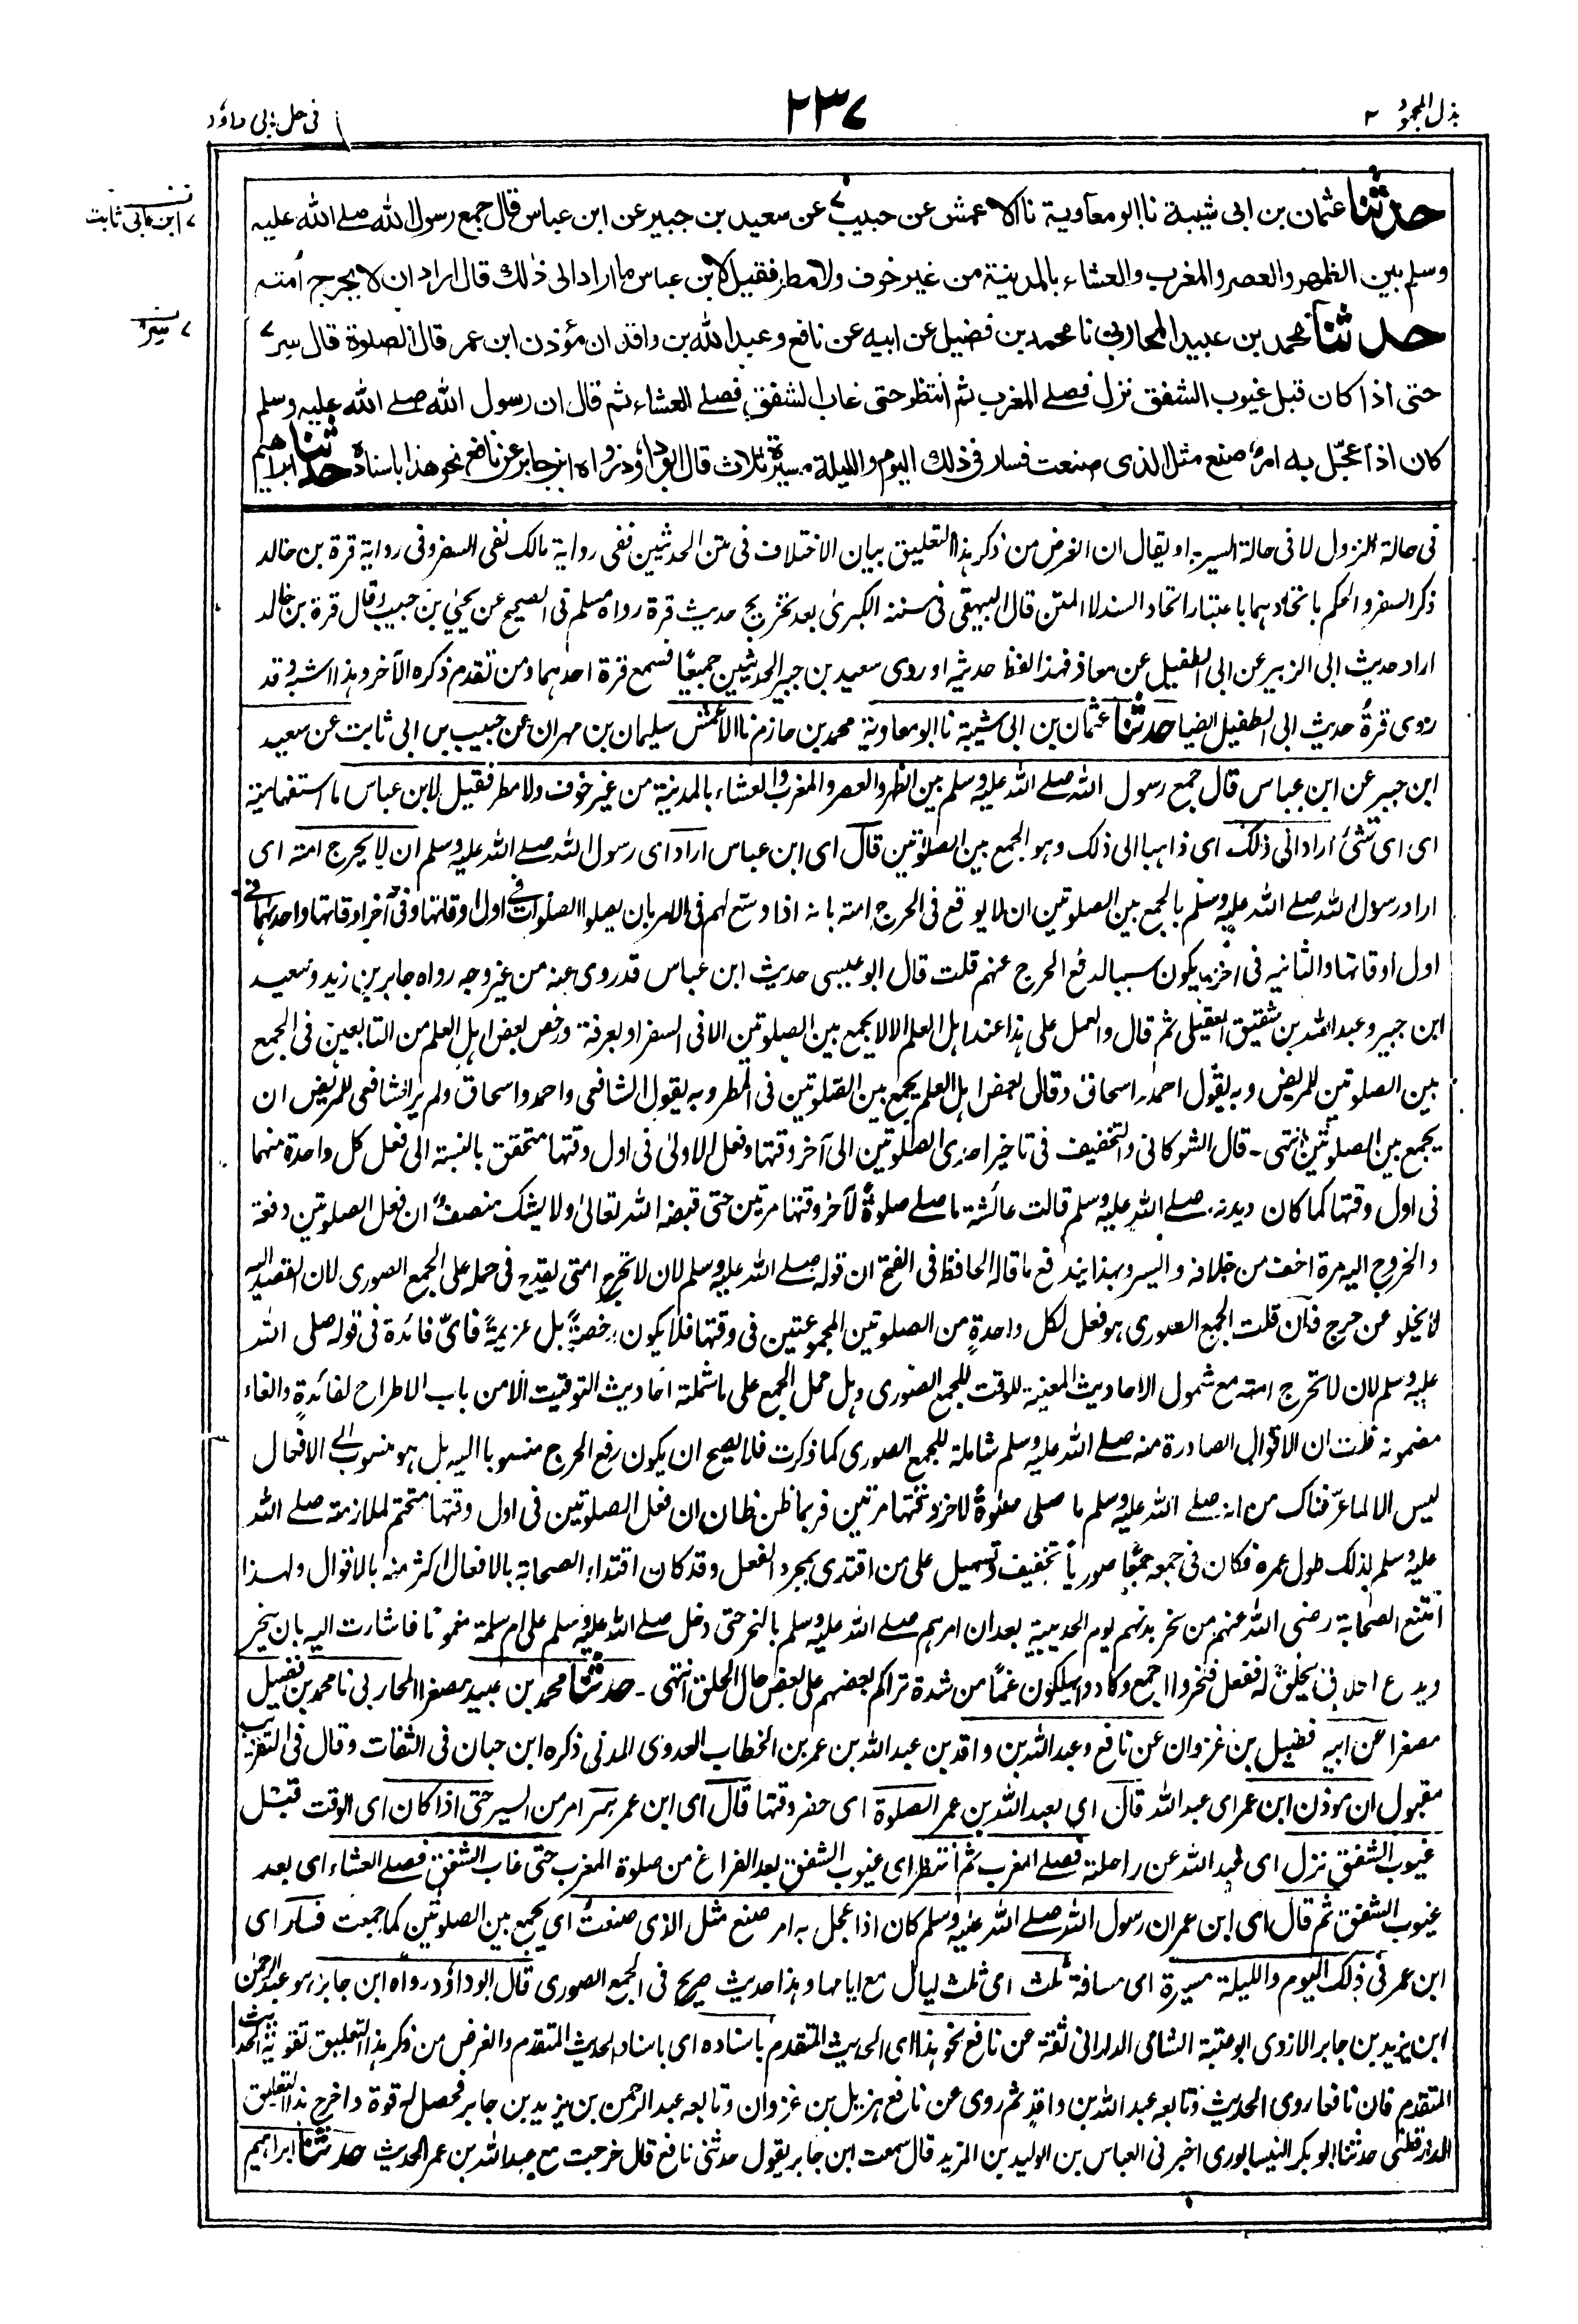 بذل المجهود ٢
٢٣٧
فی حل ابی داؤد
حدثنا عثمان بن ابی شیبة نا ابو معاویة نا الاعمش عن حبیب٧ عن سعید بن جبیر عن ابن عباس قال جمع رسول الله صلے الله علیه
٧ ابن ابی ثابت
وسلم بین الظهر والعصر والمغرب والعشاء بالمدینة من غیر خوف ولا مطر فقیل لابن عباس ما اراد الی ذٰلك قال اراد ان لا یحرج اُمته
حدثنا محمد بن عبید المحاربی نا محمد بن فضیل عن ابیه عن نافع وعبد الله بن واقد ان مؤذن ابن عمر قال الصلوة قال سِر٧
٧ سِر
حتی اذا کان قبل غیوب الشفق نزل فصلے المغرب ثم انتظر حتی غاب الشفق فصلے العشاء ثم قال ان رسول الله صلے الله علیه وسلم
کان اذا عجّل به امرٌ صنع مثل الذی صنعت فسار فی ذلك الیوم واللیلة مسیرة ثلاث قال ابو داؤد رواه ابن جابر عن نافع نحو هذا باسناده حدثنا ابراهیم
فی حالة النزول لا فی حالة السیر او یقال ان الغرض من ذکر هذا التعلیق بیان الاختلاف فی متن الحدیثین ففی روایة مالک نفی السفر وفی روایة قرة بن خالد
ذکر السفر والحکم باتحادهما باعتبار اتحاد السند لا المتن قال البیهقی فی سننه الکبریٰ بعد تخریج حدیث قرة رواه مسلم فی الصحیح عن یحیٰی بن حبیب وقال قرة بن خالد
اراد حدیث ابی الزبیر عن ابی الطفیل عن معاذ فهذا لفظ حدیثه او روی سعید بن جبیر الحدیثین جمیعًا فسمع قرة احدهما ومن تقدم ذکره الآخر وهذا اشبه وقد
روی قرةُ حدیث ابی الطفیل ایضا حدثنا عثمان بن ابی شیبة نا ابو معاویة محمد بن حازم نا الاعمش سلیمان بن مهران عن حبیب بن ابی ثابت عن سعید
ابن جبیر عن ابن عباس قال جمع رسول الله صلے الله علیه وسلم بین الظهر والعصر والمغرب والعشاء بالمدینة من غیر خوف ولا مطر فقیل لابن عباس ما استفهامیة
ای ای شئ اراد الی ذلک ای ذاهبا الی ذلک وهو الجمع بین الصلوٰتین قال ای ابن عباس اراد ای رسول الله صلے الله علیه وسلم ان لا یحرج امته ای
اراد رسول الله صلے الله علیه وسلم بالجمع بین الصلوتین ان لا یوقع فی الحرج امته بانه اذا وسّع لهم فی الامر بان یصلوا الصلوات فی اول اوقاتها وفی آخر اوقاتها واحدٰهما فی
اول اوقاتها والثانیه فی آخره یکون سببا لدفع الحرج عنهم قلت قال ابو عیسی حدیث ابن عباس قد روی عنه من غیر وجه رواه جابر بن زید وسعید
ابن جبیر وعبد الله بن شقیق العقیلی ثم قال والعمل علی هذا عند اهل العلم الا لا یجمع بین الصلوتین الا فی السفر او بعرفة ورخص بعض اهل العلم من التابعین فی الجمع
بین الصلوتین للمریض وبه یقول احمد واسحاق وقال بعض اهل العلم یجمع بین الصّلوتین فی المطر وبه یقول الشافعی واحمد واسحاق ولم یر الشافعی للمریض ان
یجمع بین الصلوتین انتهی۔ قال الشوکانی والتخفیف فی تاخیر احدی الصلوتین الی آخر وقتها وفعل الاولیٰ فی اول وقتها متحقق بالنسبة الی فعل کل واحدة منهما
فی اول وقتها کما کان دیدنه صلے الله علیه وسلم قالت عائشة ما صلے صلوةً لآخر وقتها مرتین حتی قبضه الله تعالیٰ ولا یشک منصف ان فعل الصلوتین دفعة
والخروج الیه مرة اخف من خلافه وایسر وبهذا یندفع ما قاله الحافظ فی الفتح ان قوله صلے الله علیه وسلم لان لا تحرج امتی یقدح فی حمله علی الجمع الصوری لان القصد الیه
لا یخلو عن حرج فان قلت الجمع الصوری هو فعل لکل واحدةٍ من الصلوتین المجموعتین فی وقتها فلا یکون رخصةً بل عزیمةً فایّ فائدة فی قوله صلی الله
علیه وسلم لان لا تحرج امته مع شمول الاحادیث المعینة للوقت للجمع الصوری وهل حمل الجمع علی ما شملته احادیث التوقیت الا من باب الاطراح لفائدةٍ والغاء
مضمونه قلت ان الاقوال الصادرة منه صلے الله علیه وسلم شاملة للجمع الصوری کما ذکرت فلا یصح ان یکون رفع الحرج منسوبا الیه بل هو منسوب الی الافعال
لیس الا لما عرّفناک من انه صلے الله علیه وسلم ما صلی صلوةً لآخر وقتها مرتین فربما ظن ظان ان فعل الصلوتین فی اول وقتها متحتم لملازمته صلے الله
علیه وسلم لذلک طول عمره فکان فی جمعه جمعًا صوریاً تخفیف وتسهیل علی من اقتدی بمجرد الفعل وقد کان اقتداء الصحابة بالافعال اکثر منه بالاقوال ولهذا
امتنع الصحابة رضی الله عنهم من نحر بدنهم یوم الحدیبیة بعد ان امرهم صلے الله علیه وسلم بالنحر حتی دخل صلے الله علیه وسلم علی ام سلمة مغمومًا فاشارت الیه بان ینحر
ویدع الحلاق یحلق له ففعل فنحروا اجمع وکادوا یهلکون غمّاً من شدة تراکم بعضهم علی بعض حال الحلق انتهی۔ حدثنا محمد بن عبید مصغرا المحاربی نا محمد بن فضیل
مصغرا عن ابیه فضیل بن غزوان عن نافع وعبد الله بن واقد بن عبد الله بن عمر بن الخطاب العدوی المدنی ذکره ابن حبان فی الثقات وقال فی التقریب
مقبول ان موذن ابن عمر ای عبد الله قال ای لعبد الله بن عمر الصلوة ای حضر وقتها قال ای ابن عمر سر امر من السیر حتی اذا کان ای الوقت قبل
غیوب الشفق نزل ای عبد الله عن راحلته فصلے المغرب ثم انتظر ای غیوب الشفق بعد الفراغ من صلوة المغرب حتی غاب الشفق فصلے العشاء ای بعد
غیوب الشفق ثم قال ای ابن عمر ان رسول الله صلے الله علیه وسلم کان اذا عجل به امر صنع مثل الذی صنعتُ ای یجمع بین الصلوتین کما جمعت فسار ای
ابن عمر فی ذلک الیوم واللیلة مسیرة ای مسافة ثلث ای ثلث لیال مع ایامها وهذا حدیث صریح فی الجمع الصوری قال ابو داؤد رواه ابن جابر هو عبد الرحمٰن
ابن یزید بن جابر الازدی ابو عتبة الشامی الدارانی ثقة عن نافع نحو هذا ای الحدیث المتقدم باسناده ای باسناد الحدیث المتقدم والغرض من ذکر هذا التعلیق تقویة الحدیث
المتقدم فان نافعا روی الحدیث وتابعه عبد الله بن واقد ثم روی عن نافع هزیل بن غزوان وتابعه عبد الرحمن بن یزید بن جابر فحصل له قوة واخرج هذا التعلیق
الدارقطنی حدثنا ابو بکر النیسابوری اخبرنی العباس بن الولید بن المزید قال سمعت ابن جابر یقول حدثنی نافع قال خرجت مع عبد الله بن عمر الحدیث حدثنا ابراهیم